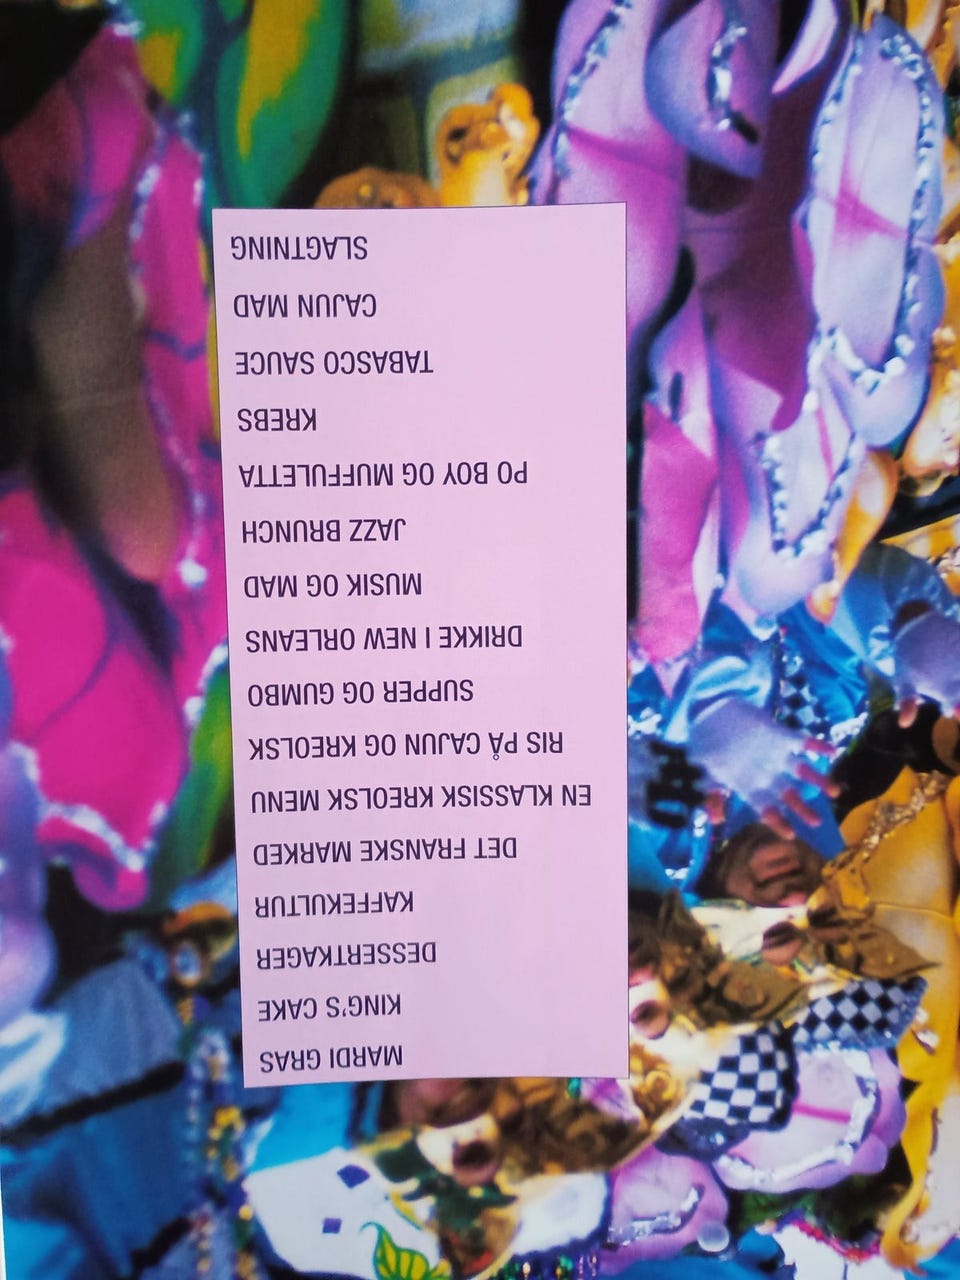 MARDI GRAS
KING'S CAKE
DESSERTKAGER
KAFFEKULTUR
DET FRANSKE MARKED
EN KLASSISK KREOLSK MENU
RIS PÅ CAJUN OG KREOLSK
SUPPER OG GUMBO
DRIKKE I NEW ORLEANS
MUSIK OG MAD
JAZZ BRUNCH
PO BOY OG MUFFULETTA
KREBS
TABASCO SAUCE
CAJUN MAD
SLAGTNING